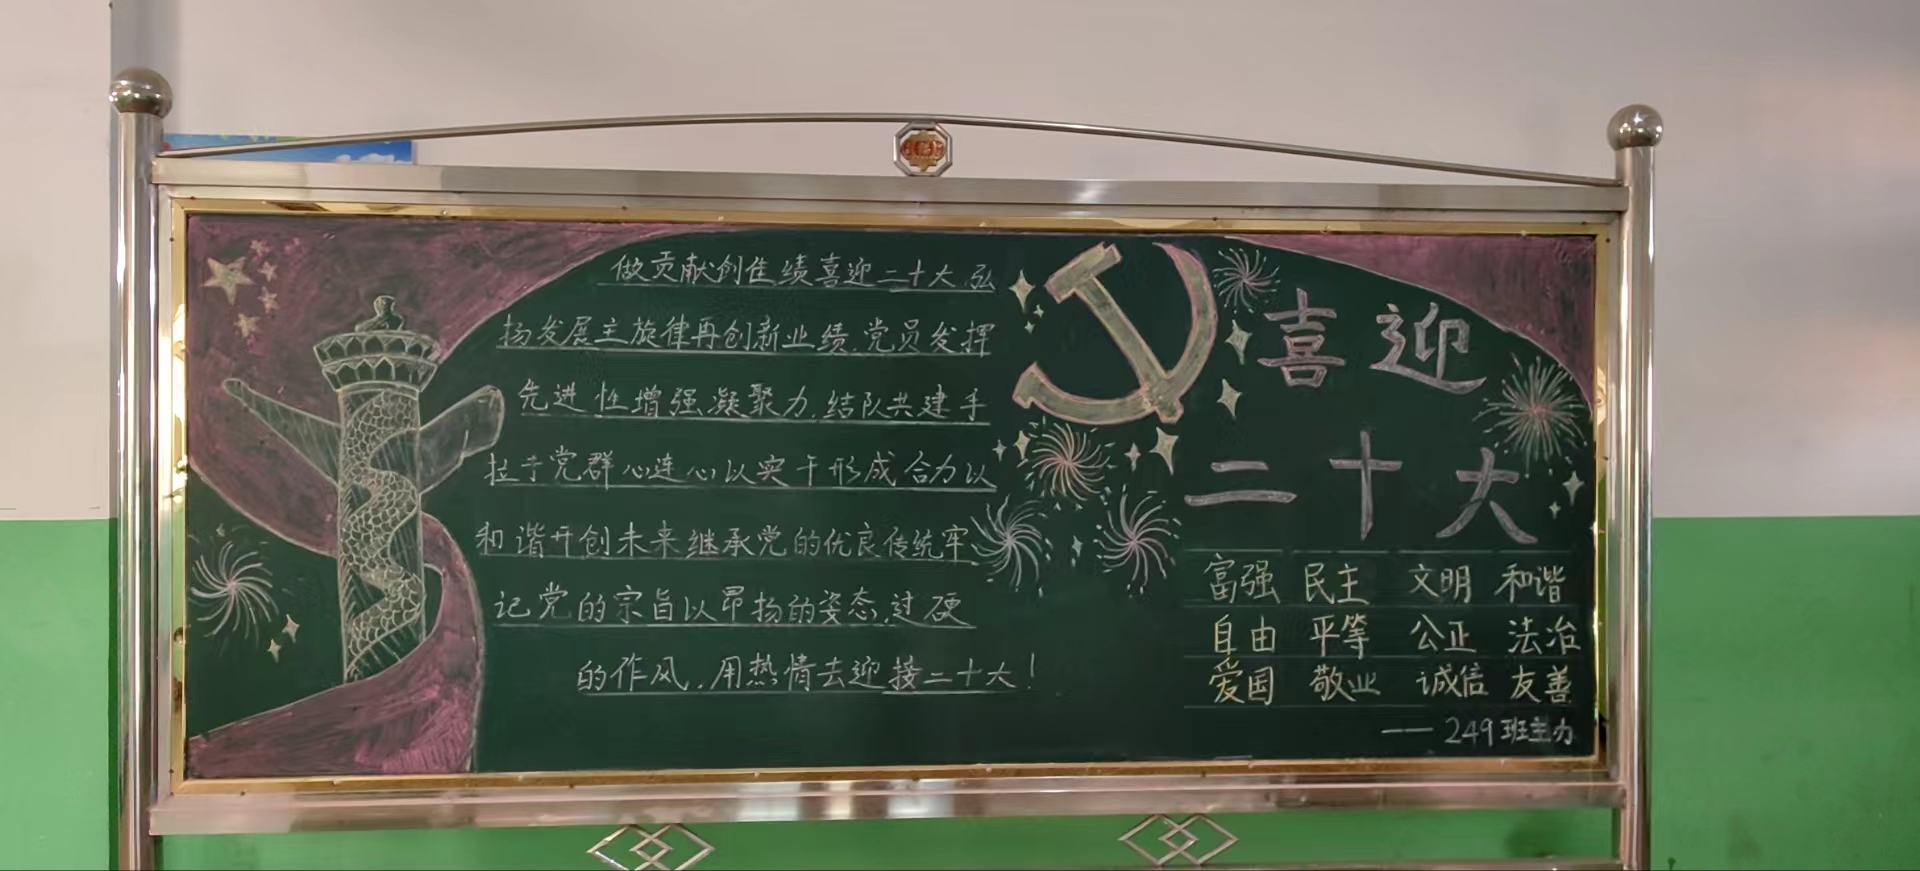 做贡献创佳绩喜迎二十大,弘
扬发展主旋律再创新业绩,党员发挥
先进性增强凝聚力,结队共建手
拉手党群心连心以实干形成合力以
和谐开创未来继承党的优良传统牢
记党的宗旨以昂扬的姿态,过硬
的作风,用热情去迎接二十大!
喜迎
二十大
富强 民主 文明 和谐
自由 平等 公正 法治
爱国 敬业 诚信 友善
——249班主办